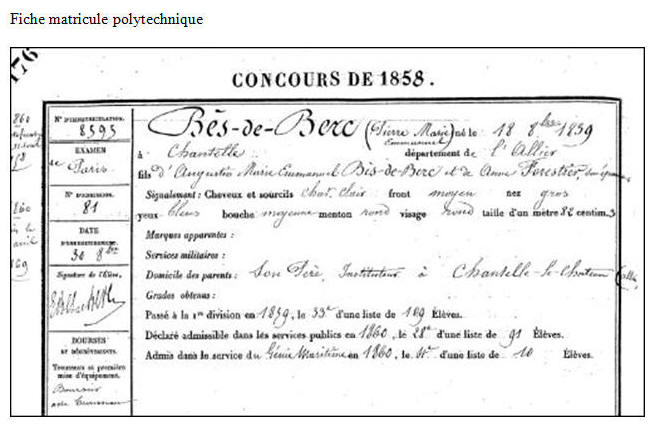 Fiche matricule polytechnique
176
CONCOURS DE 1858.
N° D'IMMATRICULATION.
8595
EXAMEN
de Paris.
N° D'ADMISSION.
81
DATE
D'ENREGISTREMENT.
30 8bre
Signature de l'Élève,
BOURSES
ET DÉGRÈVEMENTS.
Trousseaux et première
mise d'équipement.
Boursier
avec Trousseau
Bès-de-Berc (Pierre Marie Emmanuel) né le 18 8bre 1839
à Chantelle département de l'Allier
fils d'Augustin Marie Emmanuel Bès-de-Berc et de Anne Forestier,
Signalement : Cheveux et sourcils chat. clair front moyen nez gros
yeux bleus bouche moyenne menton rond visage rond taille d'un mètre 82 centim.s
Marques apparentes :
Services militaires :
Domicile des parents : Son Père, Instituteur à Chantelle-le-Château
Grades obtenus :
Passé à la 1re division en 1859, le 33e d'une liste de 109 Élèves.
Déclaré admissible dans les services publics en 1860, le 28e d'une liste de 91 Élèves.
Admis dans le service du Génie Maritime en 1860, le 4e d'une liste de 10 Élèves.